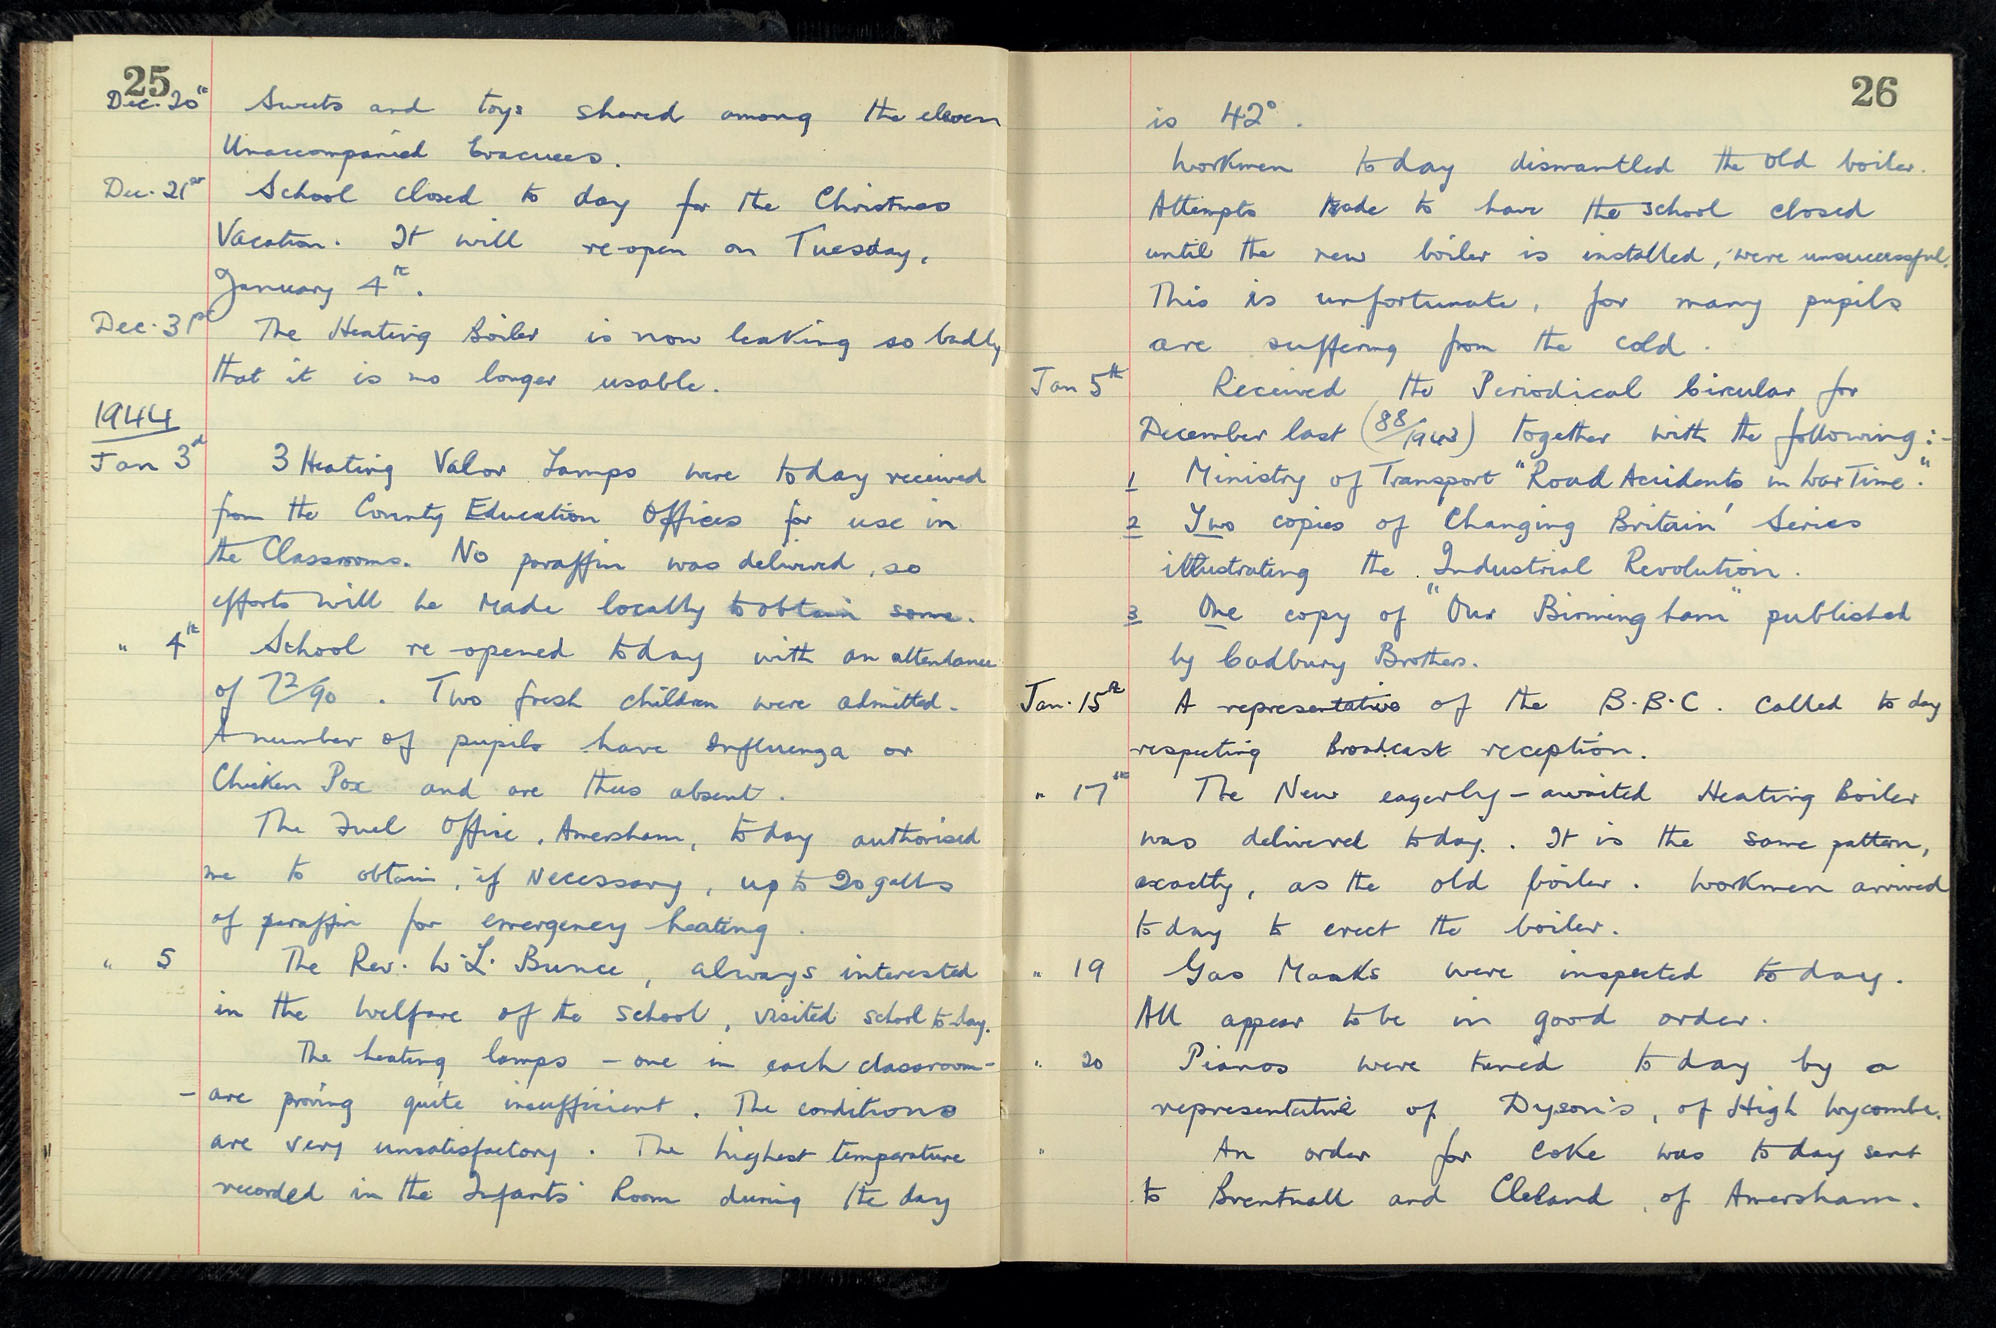 25
Dec. 20th Sweets and toys shared among the eleven
Unaccompanied Evacuees.
Dec. 21st School closed to day for the Christmas
Vacation. It will re-open on Tuesday,
January 4th.
Dec. 31st The Heating Boiler is now leaking so badly
that it is no longer usable.
1944
Jan 3rd 3 Heating Valor Lamps were today received
from the County Education Offices for use in
the Classrooms. No paraffin was delivered, so
efforts will be made locally to obtain some.
" 4th School re-opened today with an attendance
of 72/90. Two fresh children were admitted.
A number of pupils have Influenza or
Chicken Pox and are thus absent.
The Fuel Office, Amersham, today authorised
me to obtain, if necessary, up to 20 galls
of paraffin for emergency heating.
" 5 The Rev. W. L. Bunce, always interested
in the welfare of the school, visited school to-day.
The heating lamps – one in each classroom –
– are proving quite insufficient. The conditions
are very unsatisfactory. The highest temperature
recorded in the Infants' Room during the day
26
is 42°.
Workmen today dismantled the old boiler.
Attempts made to have the school closed
until the new boiler is installed, were unsuccessful.
This is unfortunate, for many pupils
are suffering from the cold.
Jan 5th Received the Periodical Circular for
December last (88/1943) together with the following :-
1 Ministry of Transport "Road Accidents in War Time."
2 Two copies of 'Changing Britain' Series
illustrating the Industrial Revolution.
3 One copy of "Our Birmingham" published
by Cadbury Brothers.
Jan. 15th A representative of the B.B.C. called to day
respecting Broadcast reception.
" 17th The New eagerly-awaited Heating Boiler
was delivered today. It is the same pattern,
exactly, as the old boiler. Workmen arrived
today to erect the boiler.
" 19 Gas Masks were inspected today.
All appear to be in good order.
" 20 Pianos were tuned today by a
representative of Dyson's, of High Wycombe.
" An order for Coke was today sent
to Brentnall and Cleland, of Amersham.